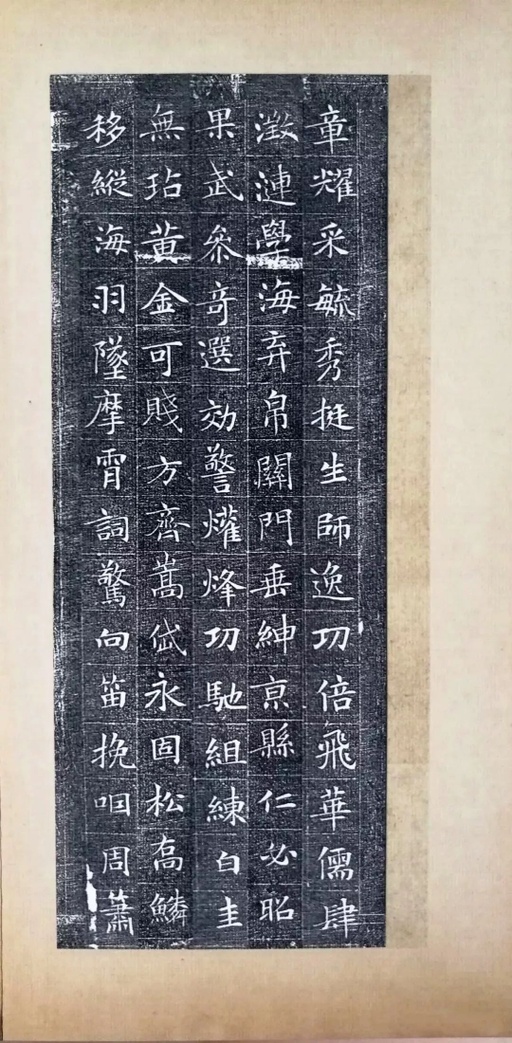 章燿采毓秀挺生師逸功倍飛華儒肆
激漣學海弃帛關門垂紳亰縣仁必昭
果武叅奇選効警爟烽功馳組練白圭
無玷黄金可賤方齊嵩岱永固松喬鱗
移縱海羽墜摩霄詞驚向笛挽咽周簫